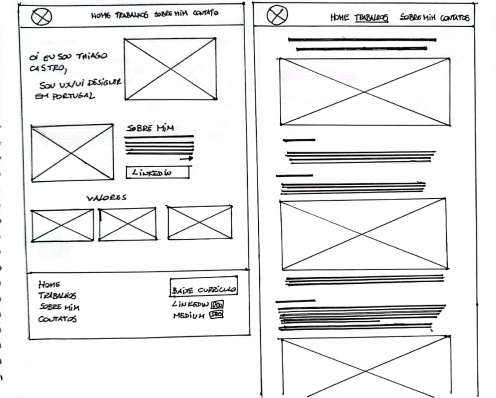 HOME TRABALHOS SOBRE MIM CONTATO
OI EU SOU THIAGO
CASTRO,
SOU UX/UI DESIGNER
EM PORTUGAL
SOBRE MIM
LINKEDIN
VALORES
HOME
TRABALHOS
SOBRE MIM
CONTATOS
BAIXE CURRÍCULO
LINKEDIN
MEDIUM
HOME TRABALHOS SOBRE MIM CONTATOS